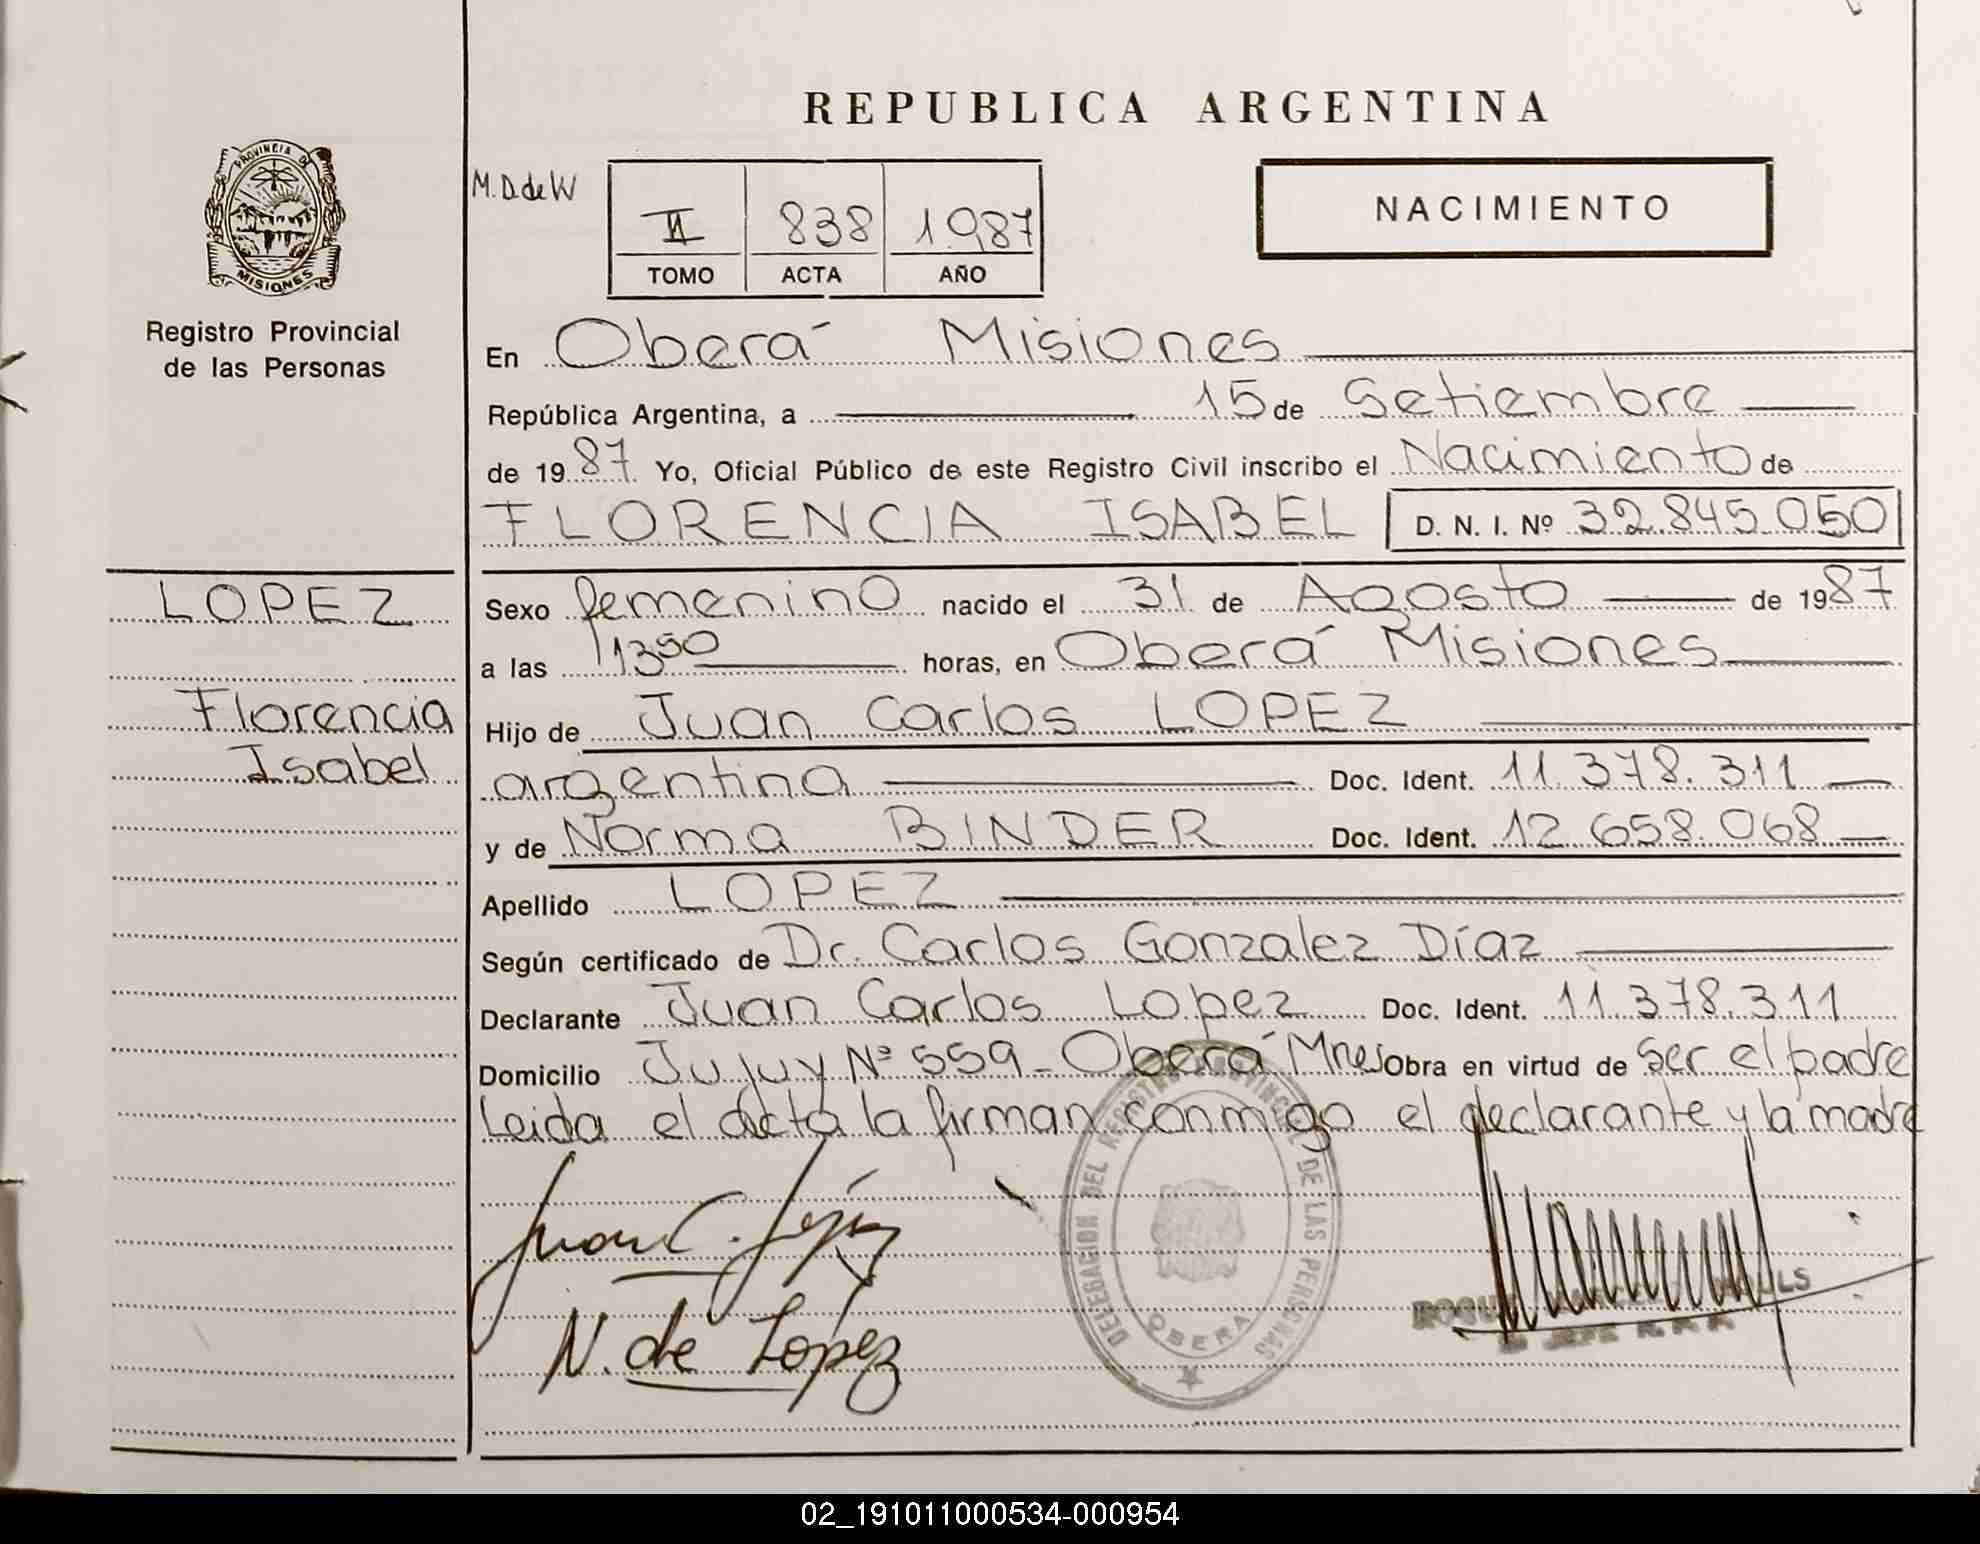 REPUBLICA ARGENTINA
PROVINCIA DE
MISIONES
Registro Provincial
de las Personas
M.D.deW
838 1987
TOMO ACTA AÑO
NACIMIENTO
En Oberá Misiones
República Argentina, a 15 de Setiembre
de 1987 Yo, Oficial Público de este Registro Civil inscribo el Nacimiento de
FLORENCIA ISABEL D. N. I. Nº 32.845.050
LOPEZ
Florencia
Isabel
Sexo femenino nacido el 31 de Agosto de 1987
a las 1350 horas, en Oberá Misiones
Hijo de Juan Carlos LOPEZ
argentina Doc. Ident. 11.378.311
y de Norma BINDER Doc. Ident. 12.658.068
Apellido LOPEZ
Según certificado de Dr. Carlos Gonzalez Díaz
Declarante Juan Carlos Lopez Doc. Ident. 11.378.311
Domicilio Jujuy Nº 559 - Oberá Mnes Obra en virtud de ser el padre
Leida el acta la firman conmigo el declarante y la madre
Juan C. López
N. de Lopez
DELEGACION DEL REGISTRO PROVINCIAL DE LAS PERSONAS
OBERA
JEFE R.P.P.
02_191011000534-000954